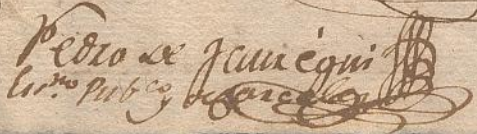 Pedro de Jauregui
Esno. Pubco. y